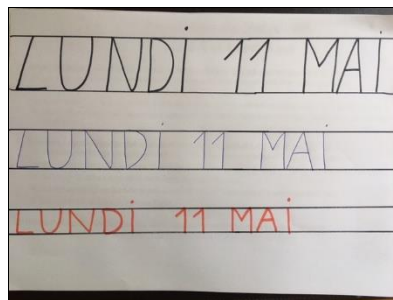 LUNDi 11 MAi
LUNDi 11 MAi
LUNDi 11 MAi